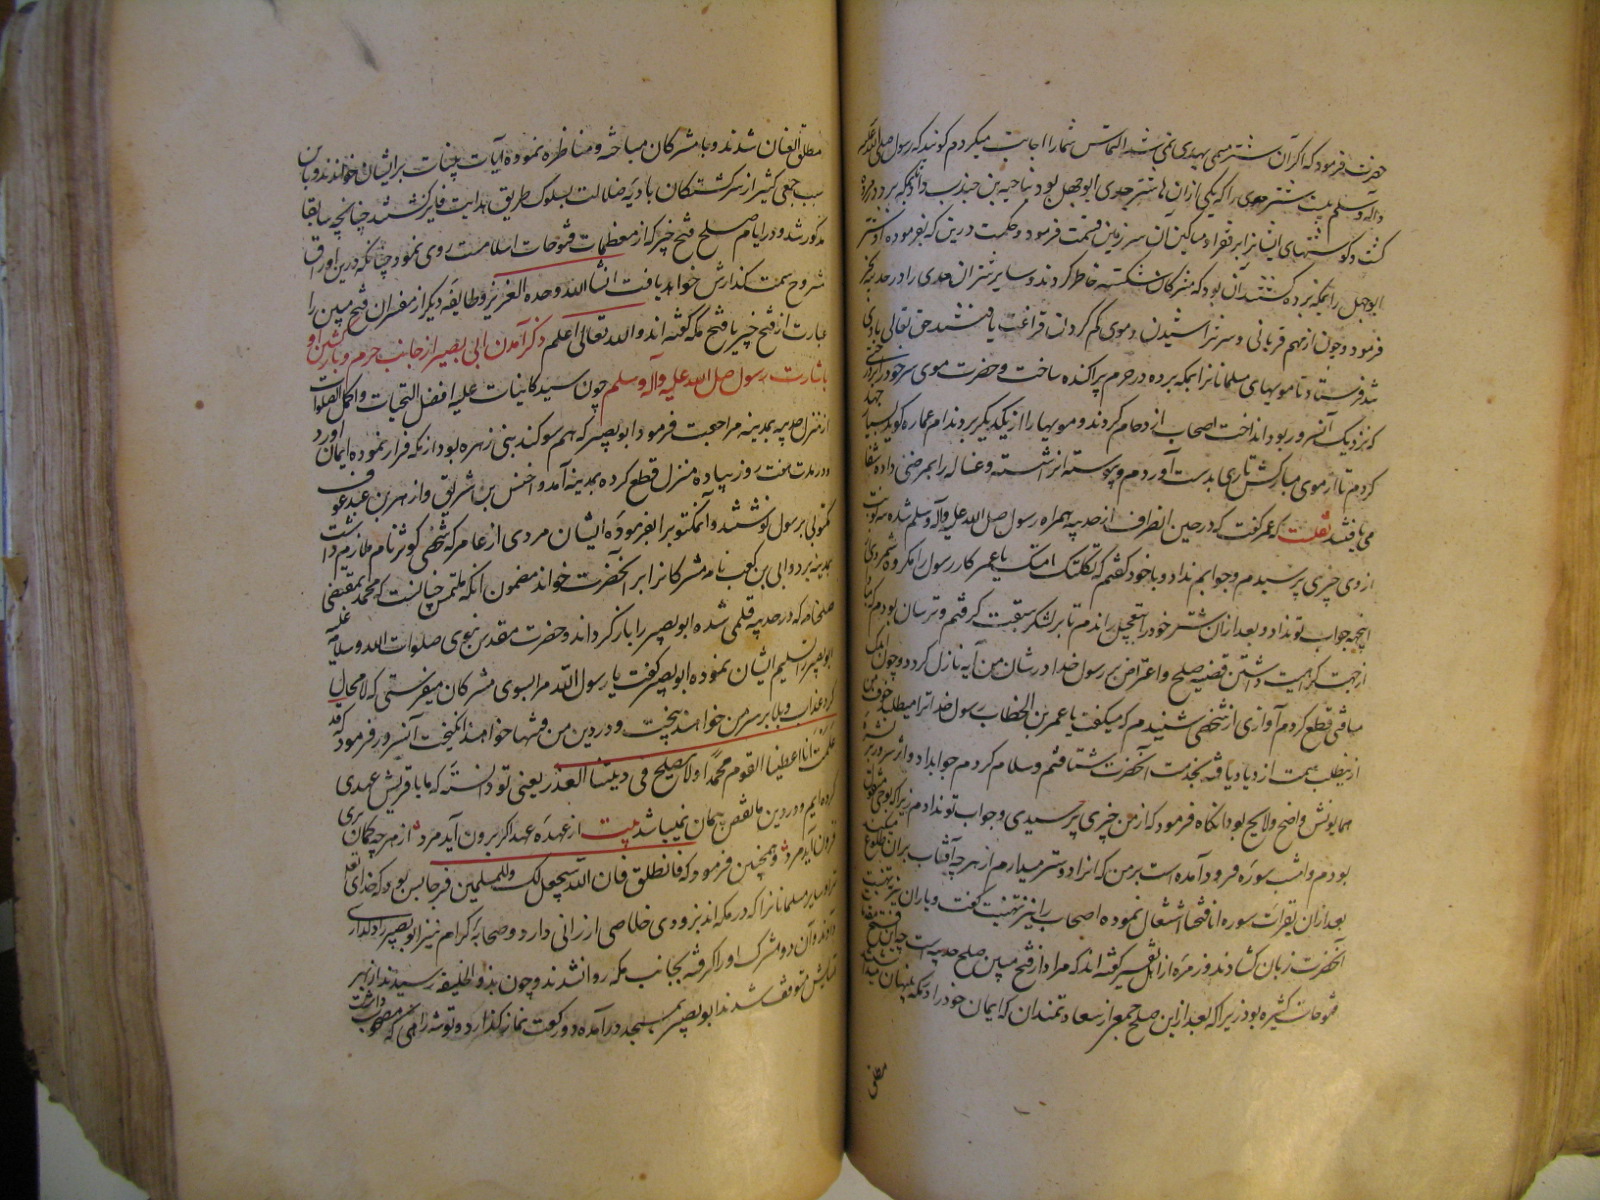 حضرت فرمود که اگر آن شتر مسمی بهدی نمی شد التماس شما را اجابت میکردم کویند که رسول صلی الله علیه
و آله و سلم بیست شتر هدی را که یکی از آن ها شتر ابوجهل بود بناجیه بن جندب داد که برد در مروه
کشد و کوشتهای ایشانرا بر فقرا و مساکین آن سرزمین قسمت فرمود و حکمت درین که بفرموده که شتر
ابوجهل را بمکه برده کشتند آن بود که مشرکان شکسته خاطر کردند و سایر شتران هدی را در حدیبیه نحر
فرمود و چون از مهم قربانی و سر تراشیدن و موی کم کردن فراغت یافتند حق تعالی بادی
فرستاد تا مویهای مسلمانانرا بمکه برده در حرم پراکنده ساخت و حضرت موی سر خود بر درختی
که نزدیک آنسرور بود انداخت اصحاب ازدحام کردند و مویها را از یکدیکر بربودند ام عماره کوید بسیار جهد
کردم تا از موی مبارکش تاری بدست آوردم و پیوسته انرا شسته و غساله را بمرضی داده شفا
می یافتند نقلست که عمر کفت که در حین انصراف از حدیبیه همراه رسول صلی الله علیه و آله و سلم شده سه نوبت
از وی چیزی پرسیدم و جوابم نداد و با خود کفتم که ثکلتک امک یا عمر کار رسول را مکروه شمردی
جواب تو نداد و بعد از آن شتر خود را تعجیل راندم تا بر لشکر سبقت کرفتم و ترسان بودم که مبادا
از جهت کراهیت داشتن قضیه صلح و اعتراض بر رسول خدا در شان من آیه نازل کردد و چون اندک
مسافتی قطع کردم آوازی از شخصی شنیدم که میکفت یا عمر بن الخطاب رسول خدا ترا میطلبد خوف من
ازین طلب سمت ازدیاد یافته بخدمت آنحضرت شتافتم و سلام کردم جواب داد و اثر سرور بر بشره
همایونش واضح و لایح بود آنکاه فرمود که از من چیزی پرسیدی و جواب تو ندادم زیرا که بوحی مشغول
بودم و امشب سوره فرود آمده است بر من که انرا دوستر میدارم از هر چه آفتاب بران طلوع میکند
بعد از آن بقرات سوره انا فتحنا اشتغال نموده اصحاب را نیز تهنیت کفت و یاران نیز بتهنیت
آنحضرت زبان کشادند و زمره از اهل تفسیر کفته اند که مراد از فتح مبین صلح حدیبیه است چه این فتح مفتاح
فتوحات کثیره بود زیرا که بعد از این صلح جمعی از سعادتمندان که ایمان خود را در مکه پنهان میداشتند
مطلق
مطلق العنان شدند و با مشرکان مباحثه و مناظره نموده آیات بینات بر ایشان خواندند و باین
سبب جمعی کثیر از سرکشتکان بادیه ضلالت بسلوک طریق هدایت فایز کشتند چنانچه سابقا
مذکور شد و در ایام صلح فتح خیبر که از معظمات فتوحات اسلامست روی نمود چنانکه درین اوراق
مشروح سمت کذارش خواهد یافت انشا الله وحده العزیز و طایفه دیکر از مفسران فتح مبین را
عبارت از فتح خیبر یا فتح مکه کفته اند و الله تعالی اعلم ذکر آمدن ابی بصیر از جانب حرم و بازکشتن او
باشارت رسول صلی الله علیه و آله و سلم چون سید کاینات علیه افضل التحیات و اکمل الصلوات
از منزل حدیبیه بمدینه مراجعت فرمود ابو بصیر که هم سوکند بنی زهره بود از مکه فرار نموده ایمان آورد
و در مدت هفت روز پیاده منزل قطع کرده بمدینه آمد و اخنس بن شریق و ازهر بن عبد عوف
مکتوبی برسول نوشتند و آن مکتوب را بفرموده ایشان مردی از عامر که شخصی کوثر نام ملازم داشت
بمدینه برد و ابی بن کعب نامه مشرکانرا بر آنحضرت خواند مضمون آنکه ملتمس چنانست که محمد بمقتضی
صلحنامه که در حدیبیه قلمی شده ابو بصیر را باز کرداند و حضرت مقدس نبوی صلوات الله و سلامه علیه
ابو بصیر را تسلیم ایشان نموده ابو بصیر کفت یا رسول الله مرا بسوی مشرکان میفرستی که لا محال
کرد عذاب و بلا بر سر من خواهند بیخت و در دین من فتنها خواهند انکیخت آنسرور فرمود که قد
علمت انا اعطینا القوم محمدا و لا یصلح فی دیننا الغدر یعنی تو دانسته که ما با قریش عهدی
کرده ایم و در دین ما نقض پیمان نمیباشد بیت از عهده عهد اکر برون آید مرد از هر چه کمان بری
فزون آید مرد و همچنین فرمود که فانطلق فان الله سیجعل لک و للمسلمین فرجا بس بود که خدای تعالی
ترا و سایر مسلمانانرا که در مکه اند بزودی خلاصی ارزانی دارد و صحابه کرام نیز ابو بصیر را دلداری
دادند و آن دو مشرک او را کرفته بجانب مکه روانه شدند و چون بذو الحلیفه رسیدند از بهر
آسایش متوقف شدند ابو بصیر بمسجد درآمده دو رکعت نماز کذارده توشه راهی که مصحوب داشت